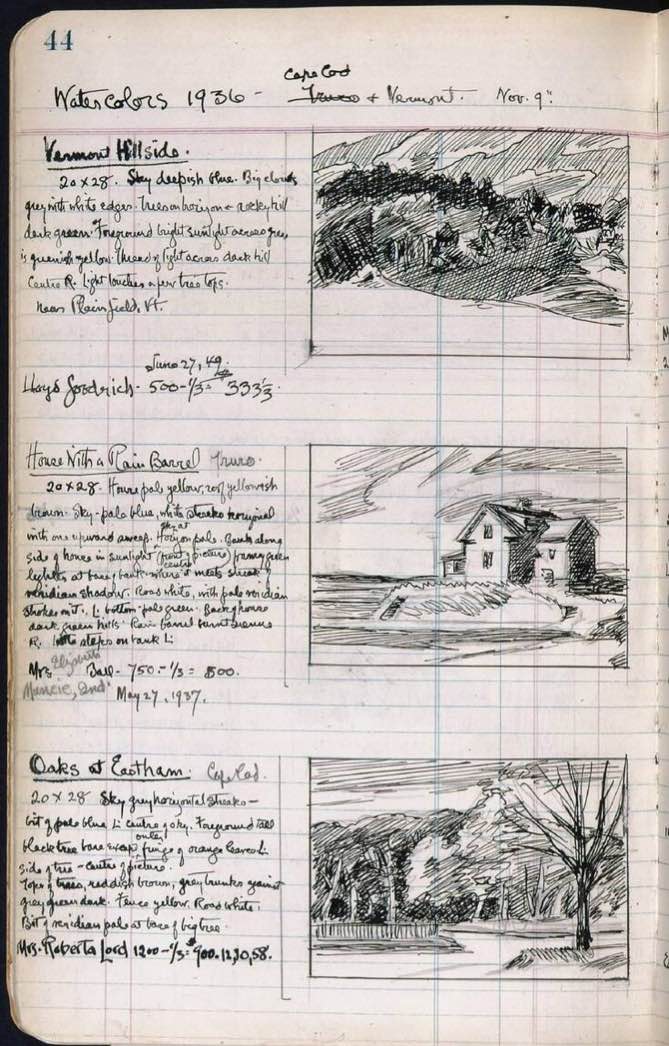 44
Cape Cod
Watercolors 1936 - Truro + Vermont. Nov. 9"
Vermont Hillside.
20 x 28. Sky deepish blue. Big clouds
grey with white edges. Trees on horizon + rocky hill
dark green. Foreground bright sunlight across grey
is greenish yellow. Thread of light across dark hill
Centre R. Light touches a few tree tops.
near Plainfield, Vt.
June 27, 49.
Lloyd Goodrich - 500 - 1/3 = 333 1/3
House With a Rain Barrel Truro.
20 x 28. House pale yellow, roof yellowish
brown. Sky - pale blue, white streaks horizontal
with one upward sweep. Sky at Horizon pale. Bank along
side of house in sunlight (front centre picture) green
lightest at base of bank where it meets streak
viridian shadow. Road white, with pale viridian
strokes on it. L. bottom pale green. Background
dark green hills. Rain barrel burnt sienna
R. little steps on bank L.
Mrs Elizabeth Ball - 750 - 1/3 = 500.
Muncie, Ind. May 27, 1937.
Oaks at Eastham. Cape Cod.
20 x 28 Sky grey horizontal streaks -
bit of pale blue L. centre of sky. Foreground tall
black tree bare except outer fringe of orange leaves L.
side of tree - centre of picture.
Tops of trees, reddish brown, grey trunks against
grey green dark. Fence yellow. Road white.
Bit of viridian pale at base of big tree.
Mrs. Roberta Lord 1200 - 1/3 = $900. 12,30,58.